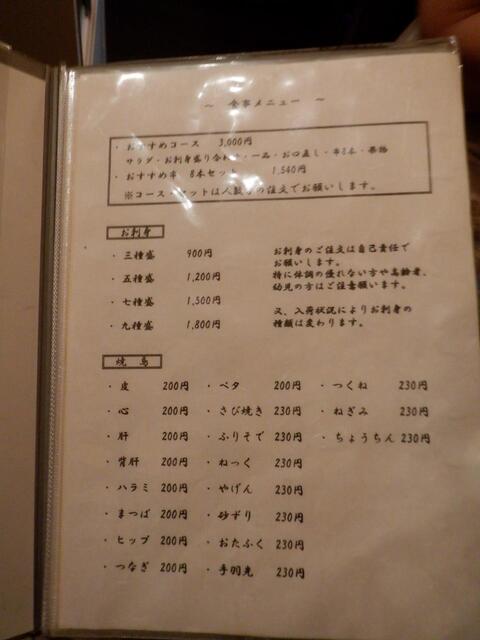 ～ 食事メニュー ～
・おすすめコース 3,000円
サラダ・お刺身盛り合わせ・一品・お口直し・串8本・果物
・おすすめ串 8本セット 1,540円
※コース・セットは人数分の注文でお願いします。
お刺身
・三種盛 900円
・五種盛 1,200円
・七種盛 1,500円
・九種盛 1,800円
お刺身のご注文は自己責任で
お願いします。
特に体調の優れない方や高齢者、
幼児の方はご注意願います。
又、入荷状況によりお刺身の
種類は変わります。
焼鳥
・皮 200円 ・ペタ 200円 ・つくね 230円
・心 200円 ・さび焼き 230円 ・ねぎみ 230円
・肝 200円 ・ふりそで 230円 ・ちょうちん 230円
・背肝 200円 ・ねっく 230円
・ハラミ 200円 ・やげん 230円
・まつば 200円 ・砂ずり 230円
・ヒップ 200円 ・おたふく 230円
・つなぎ 200円 ・手羽先 230円